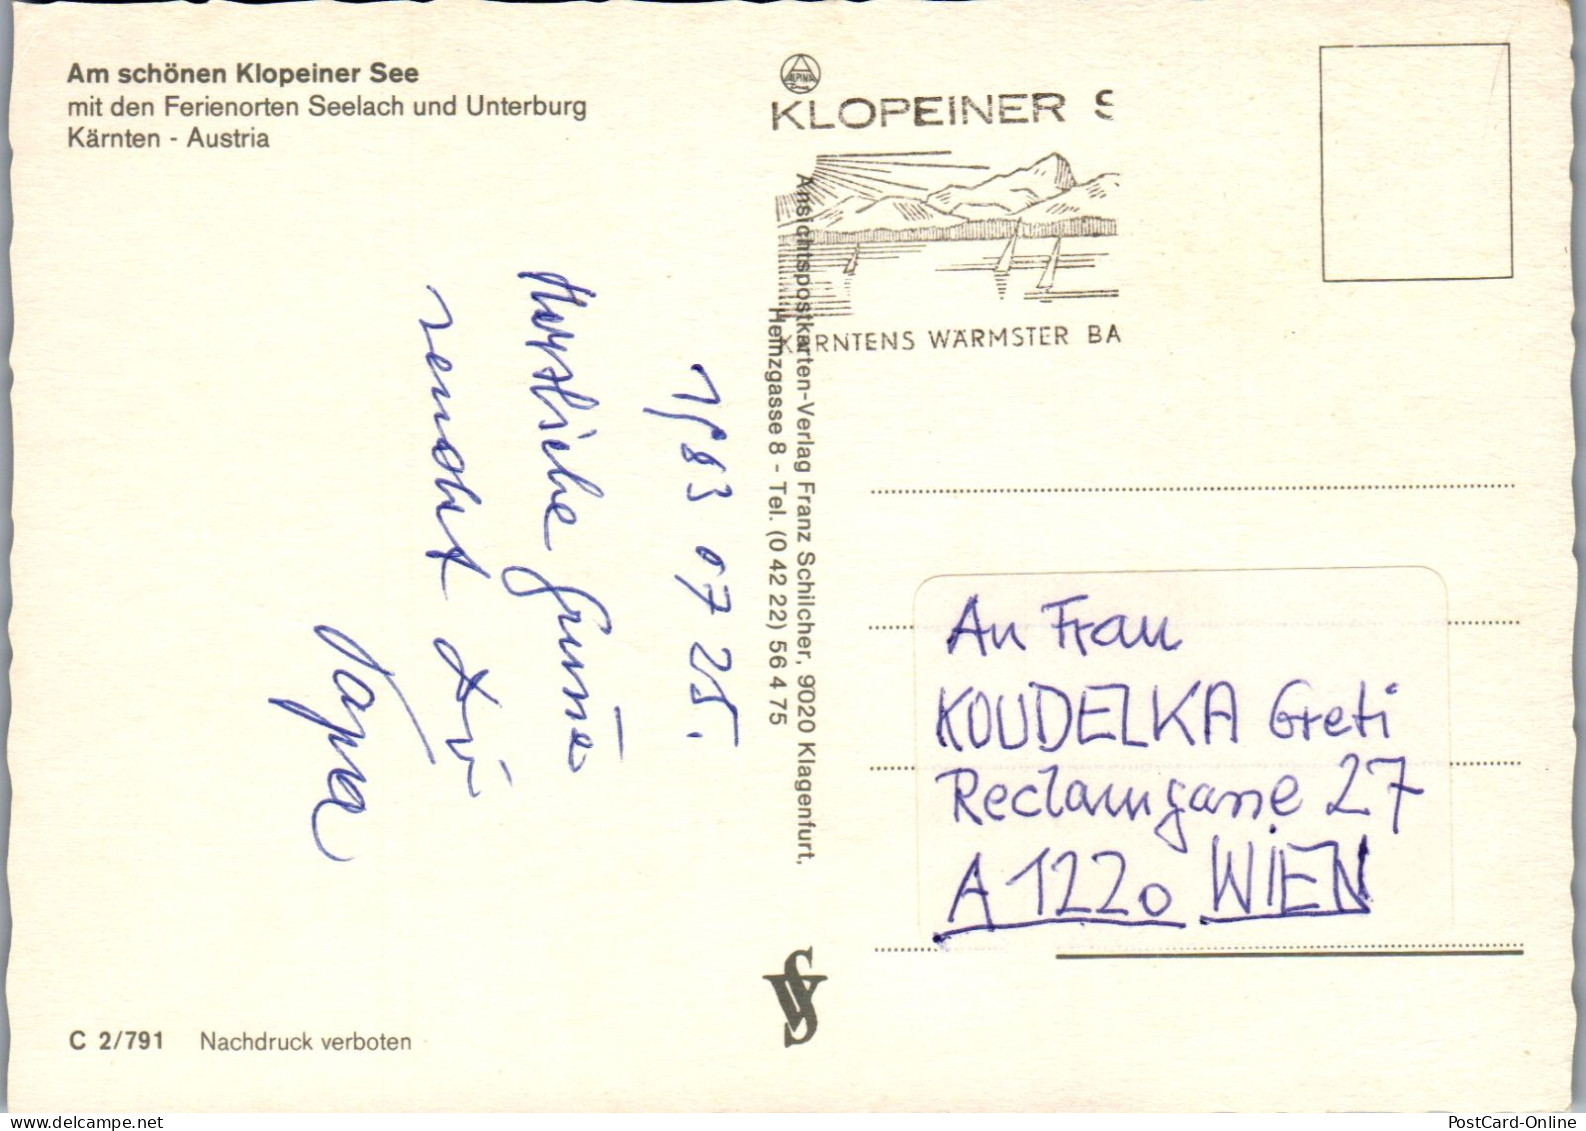 Am schönen Klopeiner See
mit den Ferienorten Seelach und Unterburg
Kärnten - Austria
ALPINA
KLOPEINER S
KÄRNTENS WÄRMSTER BA
1983 07 25.
Herzliche Grüße
sendet Dir
Papa
Ansichtspostkarten-Verlag Franz Schilcher, 9020 Klagenfurt,
Heinzgasse 8 - Tel. (0 42 22) 56 4 75
An Frau
KOUDELKA Greti
Reclamgasse 27
A 1220 WIEN
C 2/791 Nachdruck verboten
PostCard-Online
www.delcampe.net